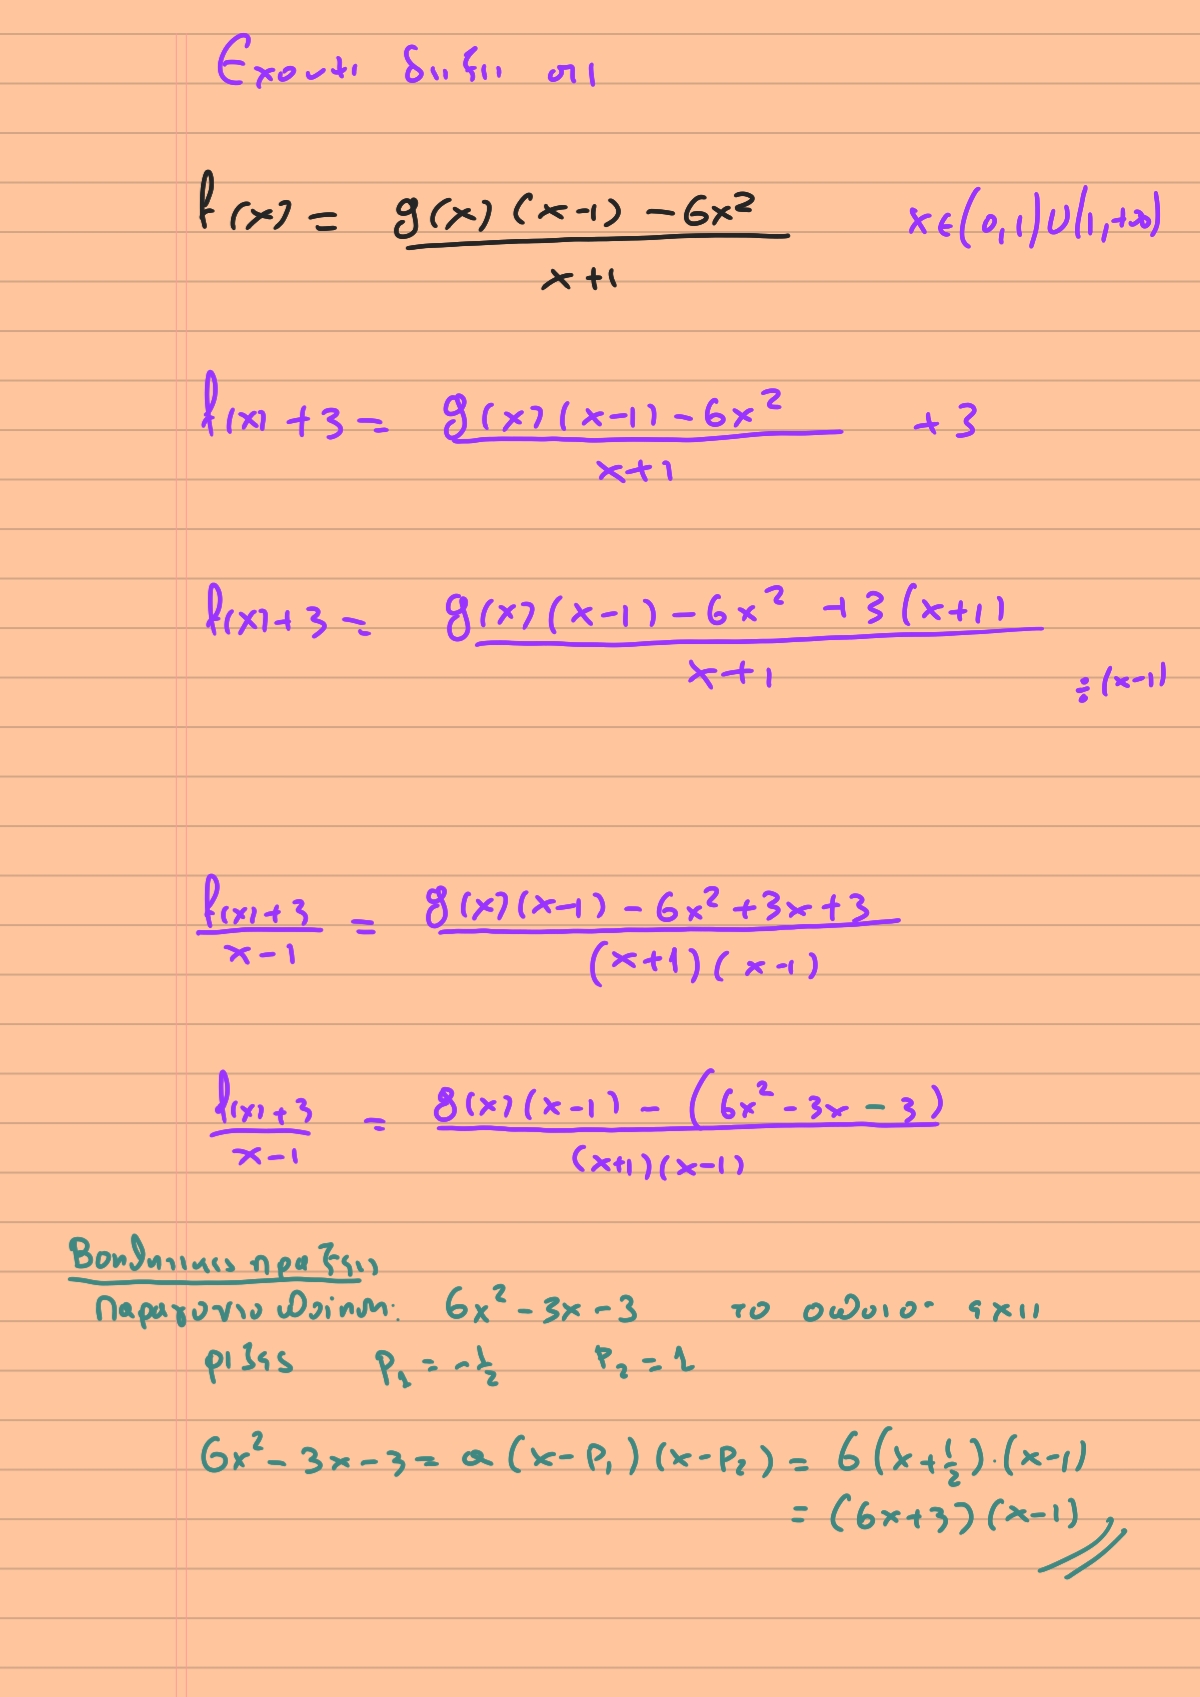 Εχουμε δειξει οτι
f(x) = \frac{g(x)(x-1) - 6x²}{x+1} x ∈ (0,1) ∪ (1,+∞)
f(x) + 3 = \frac{g(x)(x-1) - 6x²}{x+1} + 3
f(x) + 3 = \frac{g(x)(x-1) - 6x² + 3(x+1)}{x+1} ÷ (x-1)
\frac{f(x)+3}{x-1} = \frac{g(x)(x-1) - 6x² + 3x + 3}{(x+1)(x-1)}
\frac{f(x)+3}{x-1} = \frac{g(x)(x-1) - (6x² - 3x - 3)}{(x+1)(x-1)}
Βοηθητικες πραξεις
6x² - 3x - 3 το οποιο εχει
ριζες ρ₁ = -\frac{1}{2} ρ₂ = 1
6x² - 3x - 3 = α(x-ρ₁)(x-ρ₂) = 6(x+\frac{1}{2})·(x-1)
= (6x+3)(x-1)